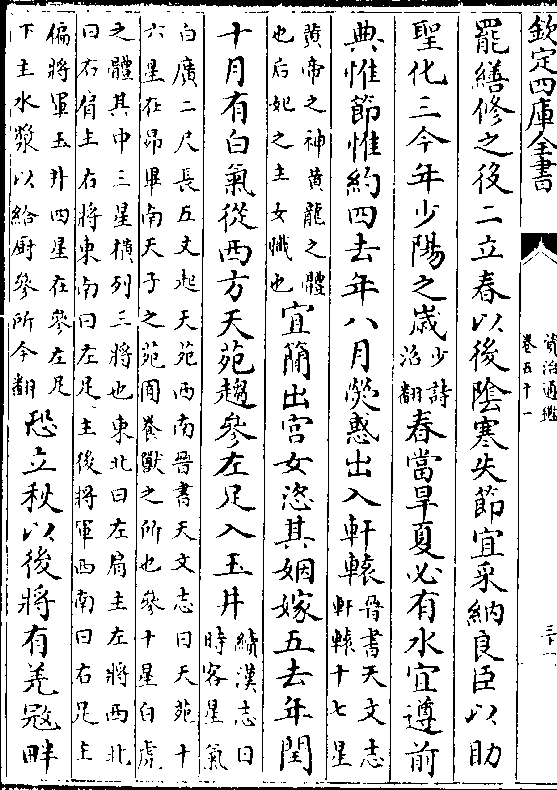 欽定四庫全書
資治通鑑
卷五十一
三十一
罷繕修之後二立春以後陰寒失節宜采納良臣以助
聖化三今年少陽之歲少詩沼翻春當旱夏必有水宜遵前
典惟節惟約四去年八月熒惑出入軒轅晉書天文志軒轅十七星
黄帝之神黄龍之體也后妃之主女職也宜簡出宫女恣其姻嫁五去年閏
十月有白氣從西方天苑趨參左足入玉井續漢志曰時客星氣
白廣二尺長五丈起天苑西南晉書天文志曰天苑十
六星在昴畢南天子之苑囿養獸之所也參十星白虎
之體其中三星横列三將也東北曰左肩主左將西北
曰右肩主右將東南曰左足主後將軍西南曰右足主
偏將軍玉井四星在參左足下主水漿以給厨參所今翻恐立秋以後將有羌寇畔